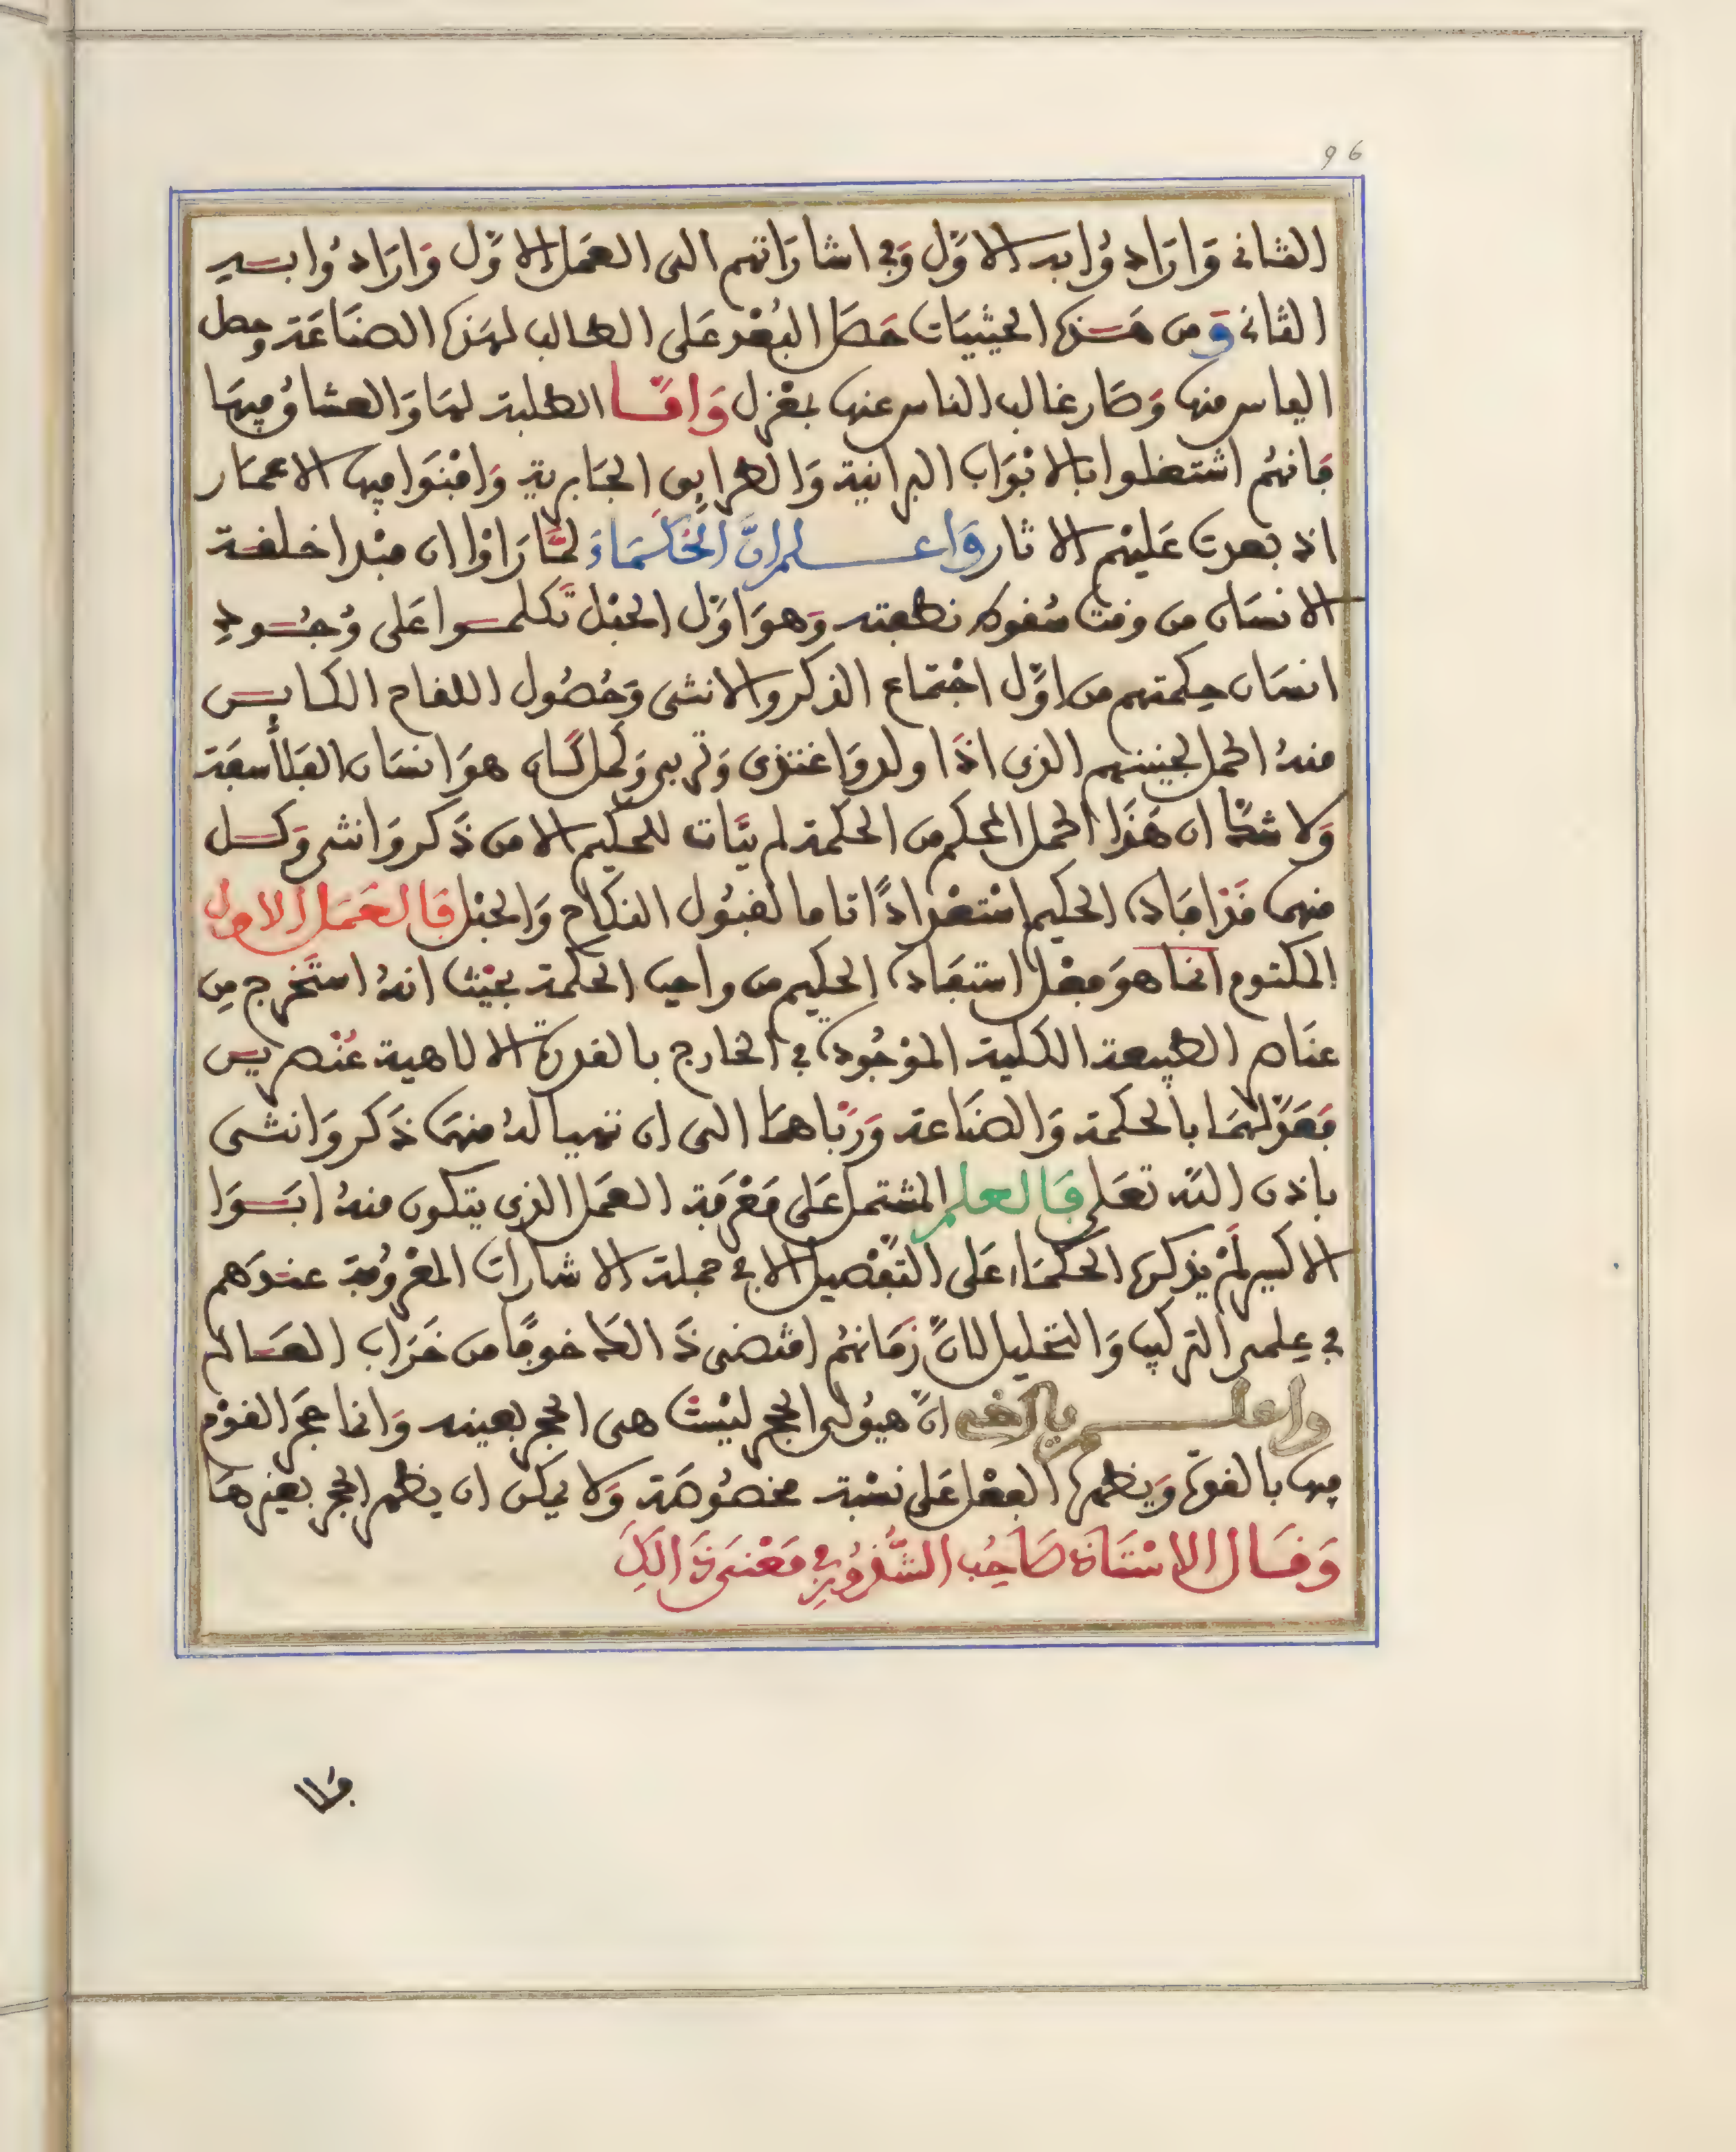 96
الثانى وَارَادُوا به الاوَّل وَفى اشارَاتهم الى العَمَل الاوَّل وَارَادُوا به
الثانى وَمن هَذه الحيثيات حَصَل البُعْد عَلى الطالب لهَذه الصنَاعَة وحصل
الياس منها وَصَار غالب الناس عنها بمعْزل وَامَّا الطلبة لهَا وَالعشاق فيهَا
فانهُم اشتغلوا بالابْوَاب البرانية وَالطرايق الجَابرية وَافْنَوا فيها الاعمَار
اذ بعدت عَليْهم الاثار وَاعلم انَّ الحُكَمَاءَ لمَّا رَاوْا ان مبْدا خلقة
الانسَان من وقت سُقوط نطفته وَهوَ اوَّل الحبْل تكلموا عَلى وُجُودِ
انسَان حِكمتهم من اوَّل اجْتماع الذكر والانثى وَحُصُول اللقاح الكاين
منهُ الحمل لجنينهم الذى اذَا ولد وَاغتذى وَتربى وَكمل كَان هوَ انسَان الفَلاسفَة
وَلا شكّ ان هَذَا الحمل المحكم من الحكمة لم يَات للحكيم الا من ذَكر وَانثى وَكل
منهما قَد افَاده الحكيم اسْتعْدادًا تاما لقبُول النكاح وَالحبْل فالعَمَل الاول
المكتوم انما هوَ فعْل استفَاده الحكيم من واهب الحكمة بحيْث انهُ استَخرج مِن
عنَاصر الطبيعة الكلية الموْجُودة فى الخارج بالقدرة الالاهية عُنْصرين
فعَدَّلهُمَا بالحكمة وَالصنَاعة وَرَبَّاهمَا الى ان تهيا لهُ منهمَا ذَكر وَانثى
باذن اللّه تعَلى فالعلم المشتمل عَلى مَعْرفة العَمَل الذى يتكون منهُ ابَوَا
الاكسير لَمْ يذكره الحكمَاء عَلى التَّفْصيل الا فى جملة الاشارات المَعْرُوفة عندَهم
فى عِلمى التركيب وَالتحليل لانَّ زمَانهُم اقْتضى ذَالك خوفًا من خَرَاب العَالم
واعلم يا اخى انَّ هيُولى الحجر ليْسَت هى الحجر بعينه وَانما حجر القوْم
فيها بالقوة وَيظهر الفعْل عَلى نسْبة مخصُوصَة وَلا يمكن ان يظهر الحجر بغيْرهَا
وَقَال الاسْتَاذ صَاحِب الشُّذُورِ فى مَعْنى ذَالكَ